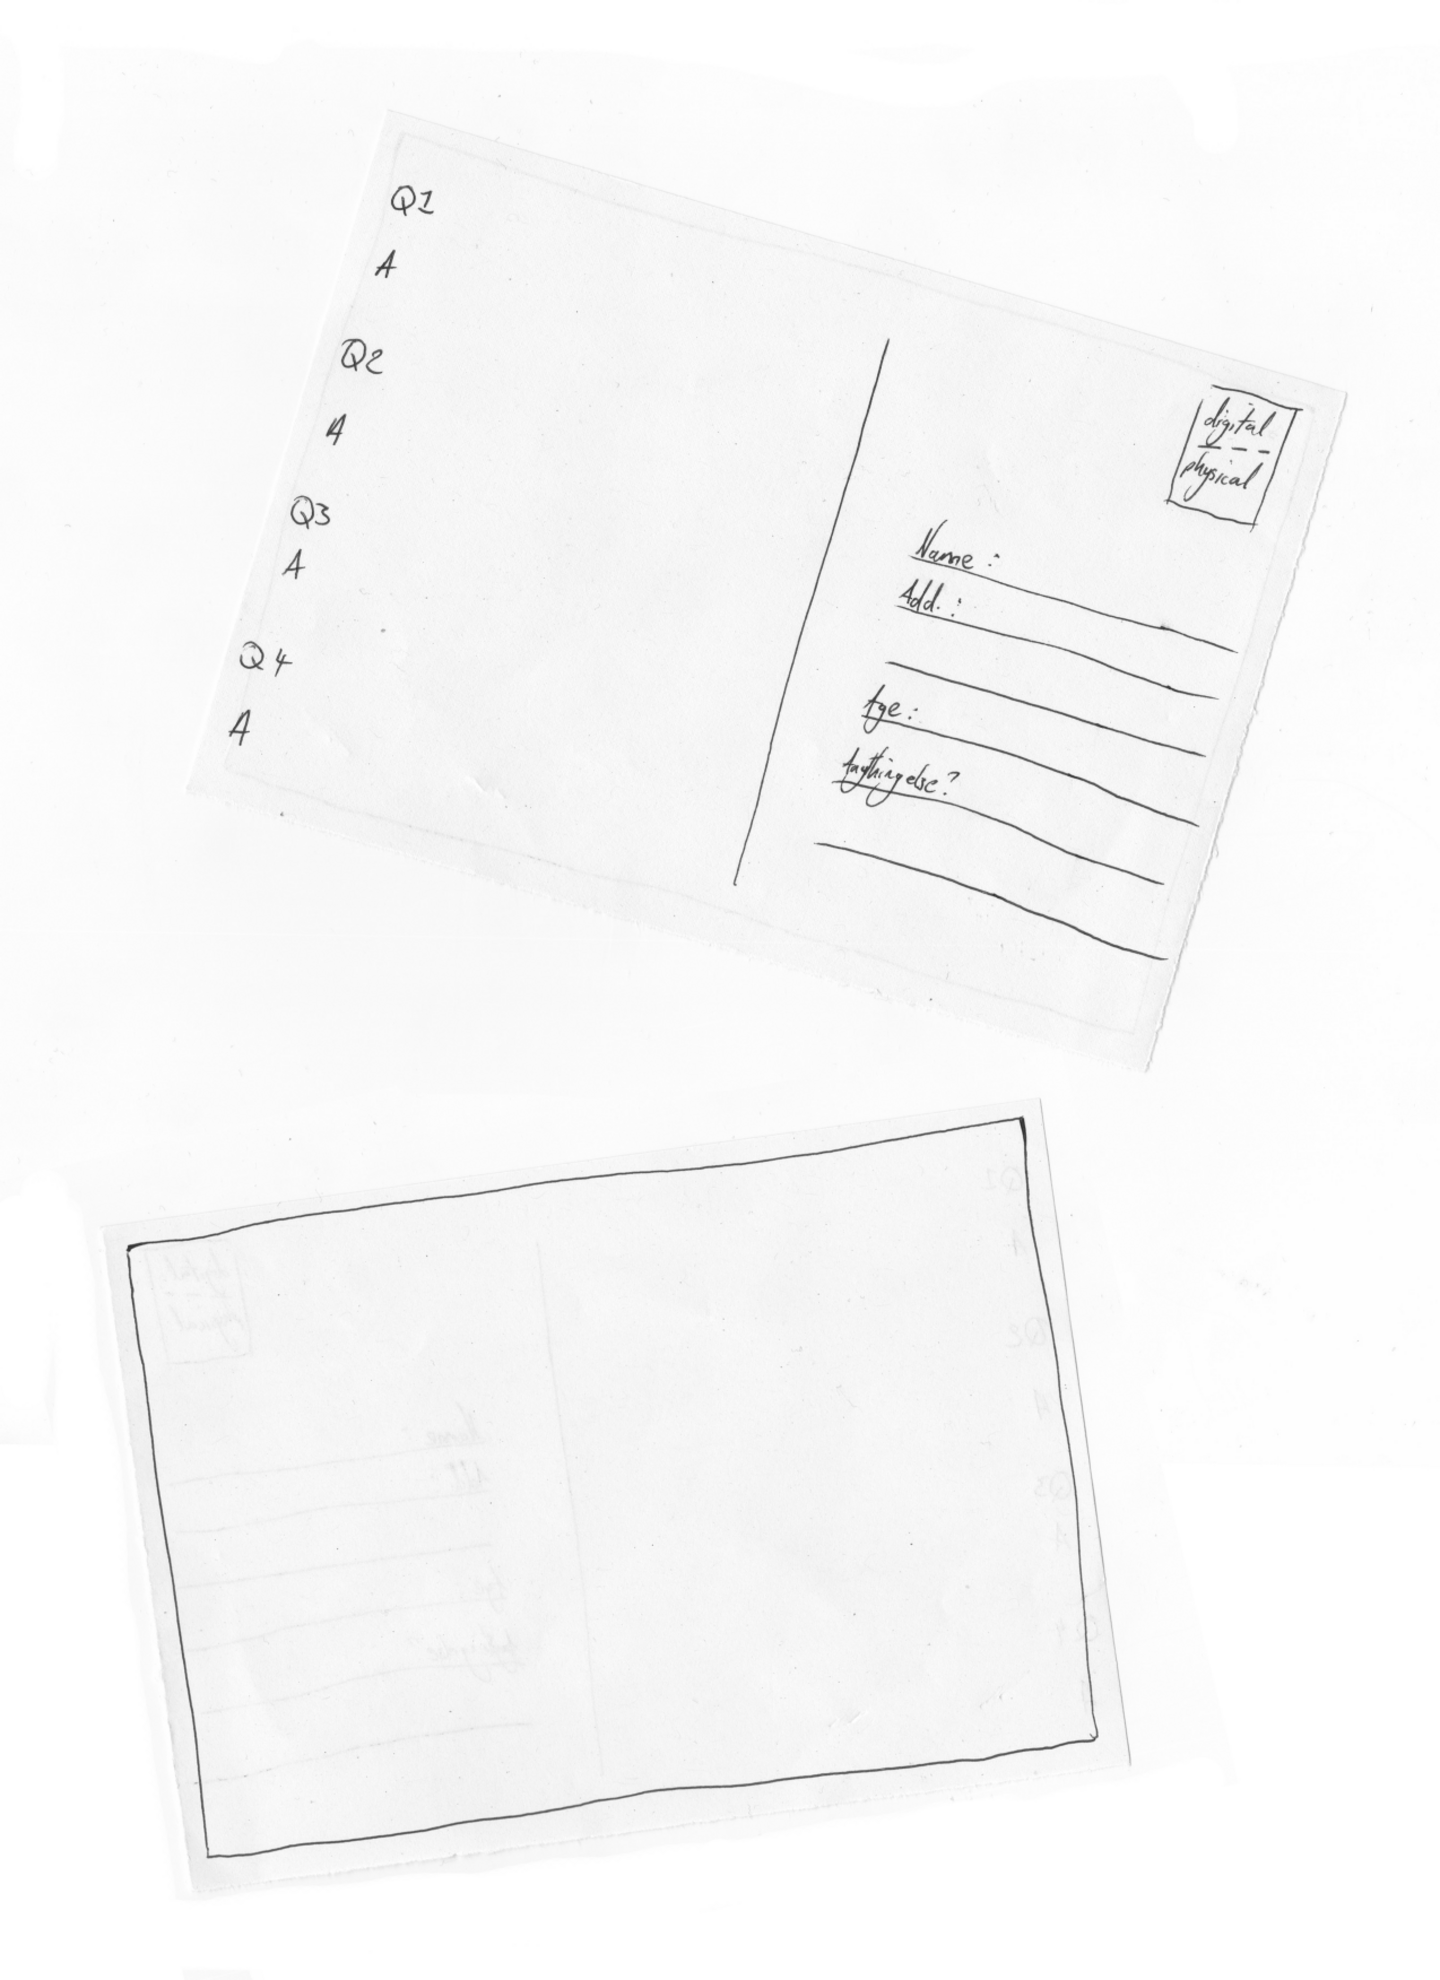 Q1
A
Q2
A
Q3
A
Q4
A
digital
physical
Name :
Add. :
Age :
Anything else?